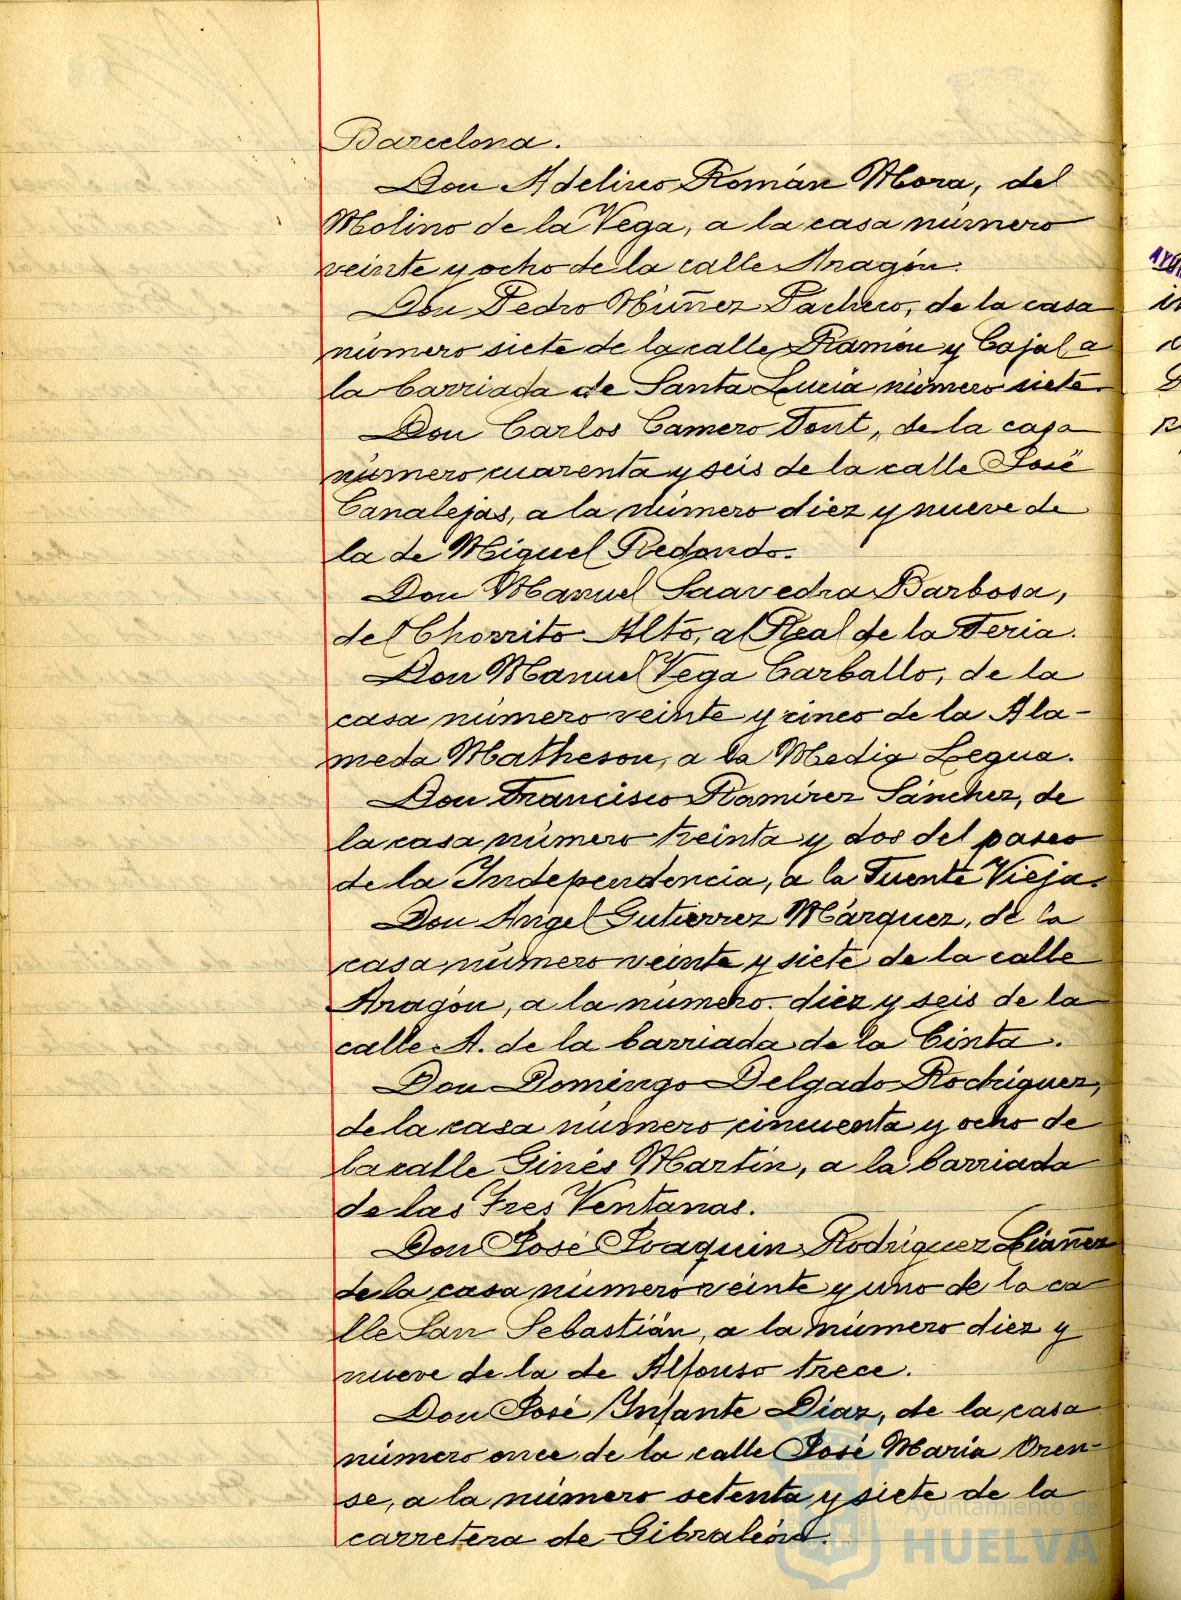 Barcelona.
Don Adelino Román Mora, del
Molino de la Vega, a la casa número
veinte y ocho de la calle Aragón.
Don Pedro Núñez Pacheco, de la casa
número siete de la calle Ramón y Cajal a
la barriada de Santa Lucía número siete.
Don Carlos Camero Font, de la casa
número cuarenta y seis de la calle José
Canalejas, a la número diez y nueve de
la de Miguel Redondo.
Don Manuel Saavedra Barbosa,
del Chorrito Alto, al Real de la Feria.
Don Manuel Vega Carballo, de la
casa número veinte y cinco de la Ala-
meda Matheson, a la Media Legua.
Don Francisco Ramírez Sánchez, de
la casa número treinta y dos del paseo
de la Independencia, a la Fuente Vieja.
Don Angel Gutierrez Márquez, de la
casa número veinte y siete de la calle
Aragón, a la número diez y seis de la
calle A. de la barriada de la Cinta.
Don Domingo Delgado Rodríguez,
de la casa número cincuenta y ocho de
la calle Ginés Martín, a la barriada
de las Tres Ventanas.
Don José Joaquín Rodríguez Liáñez
de la casa número veinte y uno de la ca
lle San Sebastián, a la número diez y
nueve de la de Alfonso trece.
Don José Infante Díaz, de la casa
número once de la calle José María Oren-
se, a la número setenta y siete de la
carretera de Gibraleón.
Ayuntamiento de
HUELVA